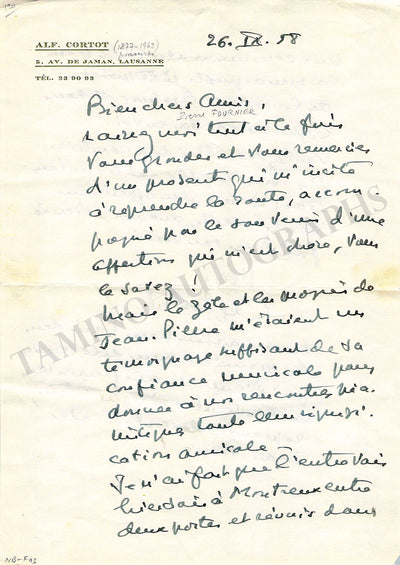 ALF. CORTOT (1877-1962)
pianiste
5, AV. DE JAMAN, LAUSANNE
TÉL. 23 90 93
26. IX. 58
Bien chers Amis,
Pierre FOURNIER
laissez moi tout à la fois
vous gronder et vous remercier
d'un présent qui m'incite
à reprendre la route, accom-
pagné par le souvenir d'une
affection qui m'est chère, vous
le savez!
Mais le zèle et les moyens de
Jean-Pierre m'étaient un
témoignage suffisant de sa
confiance musicale pour
donner à nos rencontres pia-
nistiques toute leur signifi-
cation amicale
Je n'ai fait que l'entrevoir
hier soir à Montreux entre
deux portes et réunis dans
TAMINO AUTOGRAPHS
NB-F93